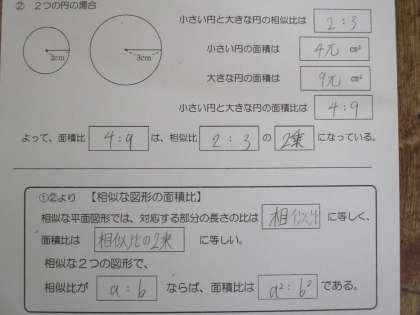 ② ２つの円の場合
小さい円と大きな円の相似比は 2:3
2cm
3cm
小さい円の面積は 4π cm²
大きな円の面積は 9π cm²
小さい円と大きな円の面積比は 4:9
よって、面積比 4:9 は、相似比 2:3 の 2乗 になっている。
①②より 【相似な図形の面積比】
相似な平面図形では、対応する部分の長さの比は 相似比 に等しく、
面積比は 相似比の2乗 に等しい。
相似な２つの図形で、
相似比が a:b ならば、面積比は a²:b² である。